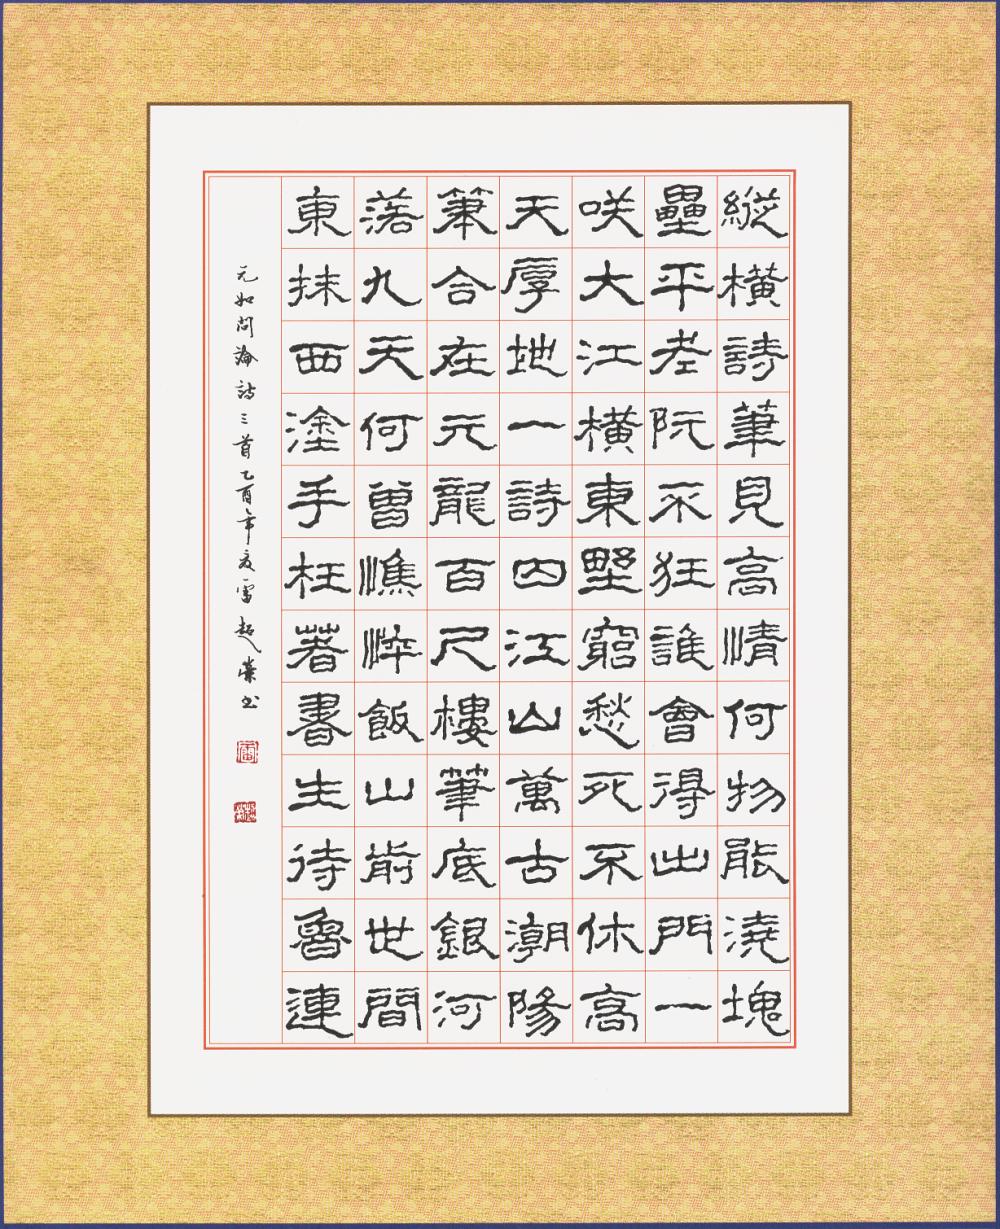 縱橫詩筆見高情何物能澆塊
壘平老阮不狂誰會得出門一
咲大江橫東墅窮愁死不休高
天厚地一詩囚江山萬古潮陽
筆合在元龍百尺樓筆底銀河
落九天何曾憔悴飯山前世間
東抹西塗手枉著書生待魯連
元好問論詩三首乙酉年夏雷超书